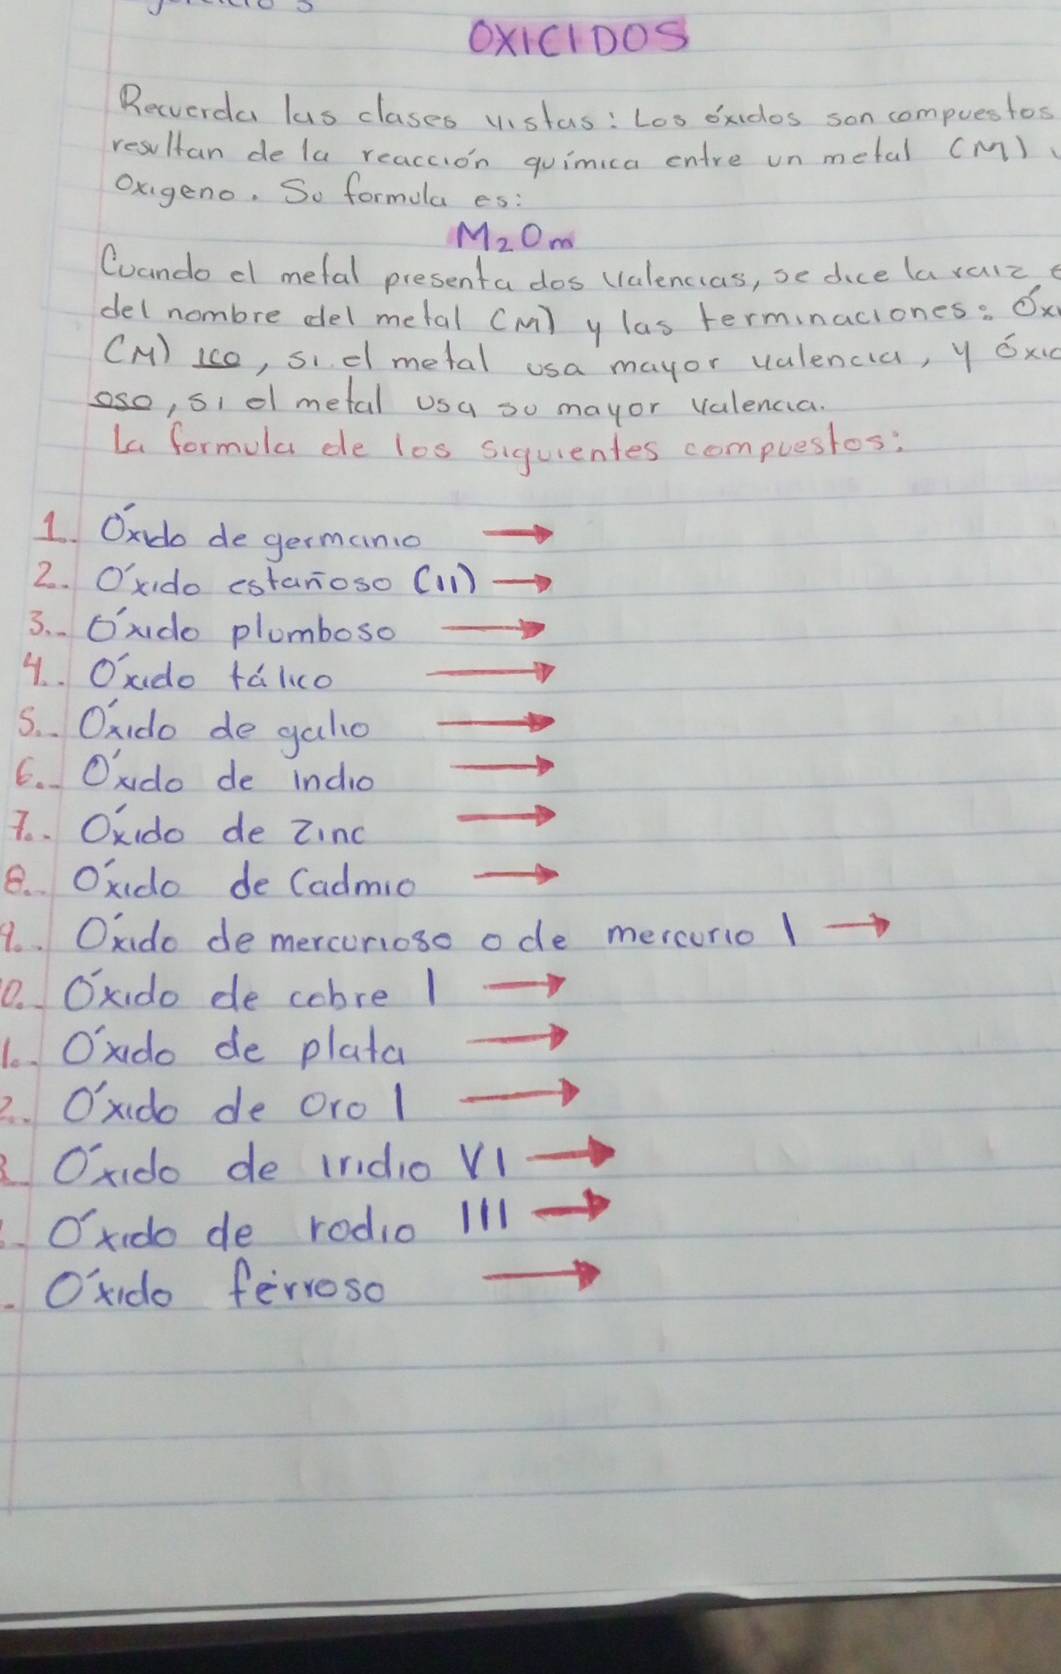 OXICIDOS
Recuerda las clases vistas: Los óxidos son compuestos
resultan de la reacción química entre un metal (M)
Oxigeno. Su formula es:
M₂Om
Cuando el metal presenta dos valencias, se dice la raiz
del nombre del metal (M) y las terminaciones: Óxi
(M) ico, si el metal usa mayor valencia, y óxid
oso, si el metal usa su mayor valencia.
La formula de los siguientes compuestos:
1. Óxido de germanio →
2. Óxido estañoso (II) →
3. Óxido plumboso →
4. Óxido tálico →
5. Óxido de galio →
6. Óxido de indio →
7. Óxido de zinc →
8. Óxido de Cadmio →
9. Óxido de mercurioso o de mercurio I →
0. Óxido de cobre I →
1. Óxido de plata →
2. Óxido de Oro I →
3. Óxido de iridio VI →
Óxido de rodio III →
Óxido ferroso →